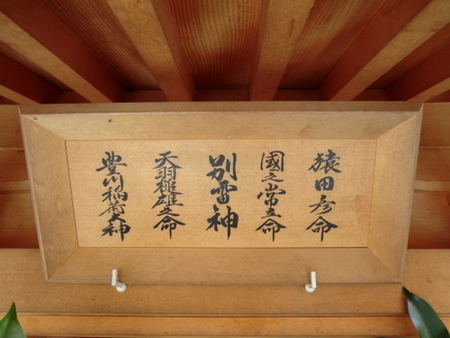 猿田彦命
國之常立命
別雷神
天羽槌雄之命
豊川稲荷大神